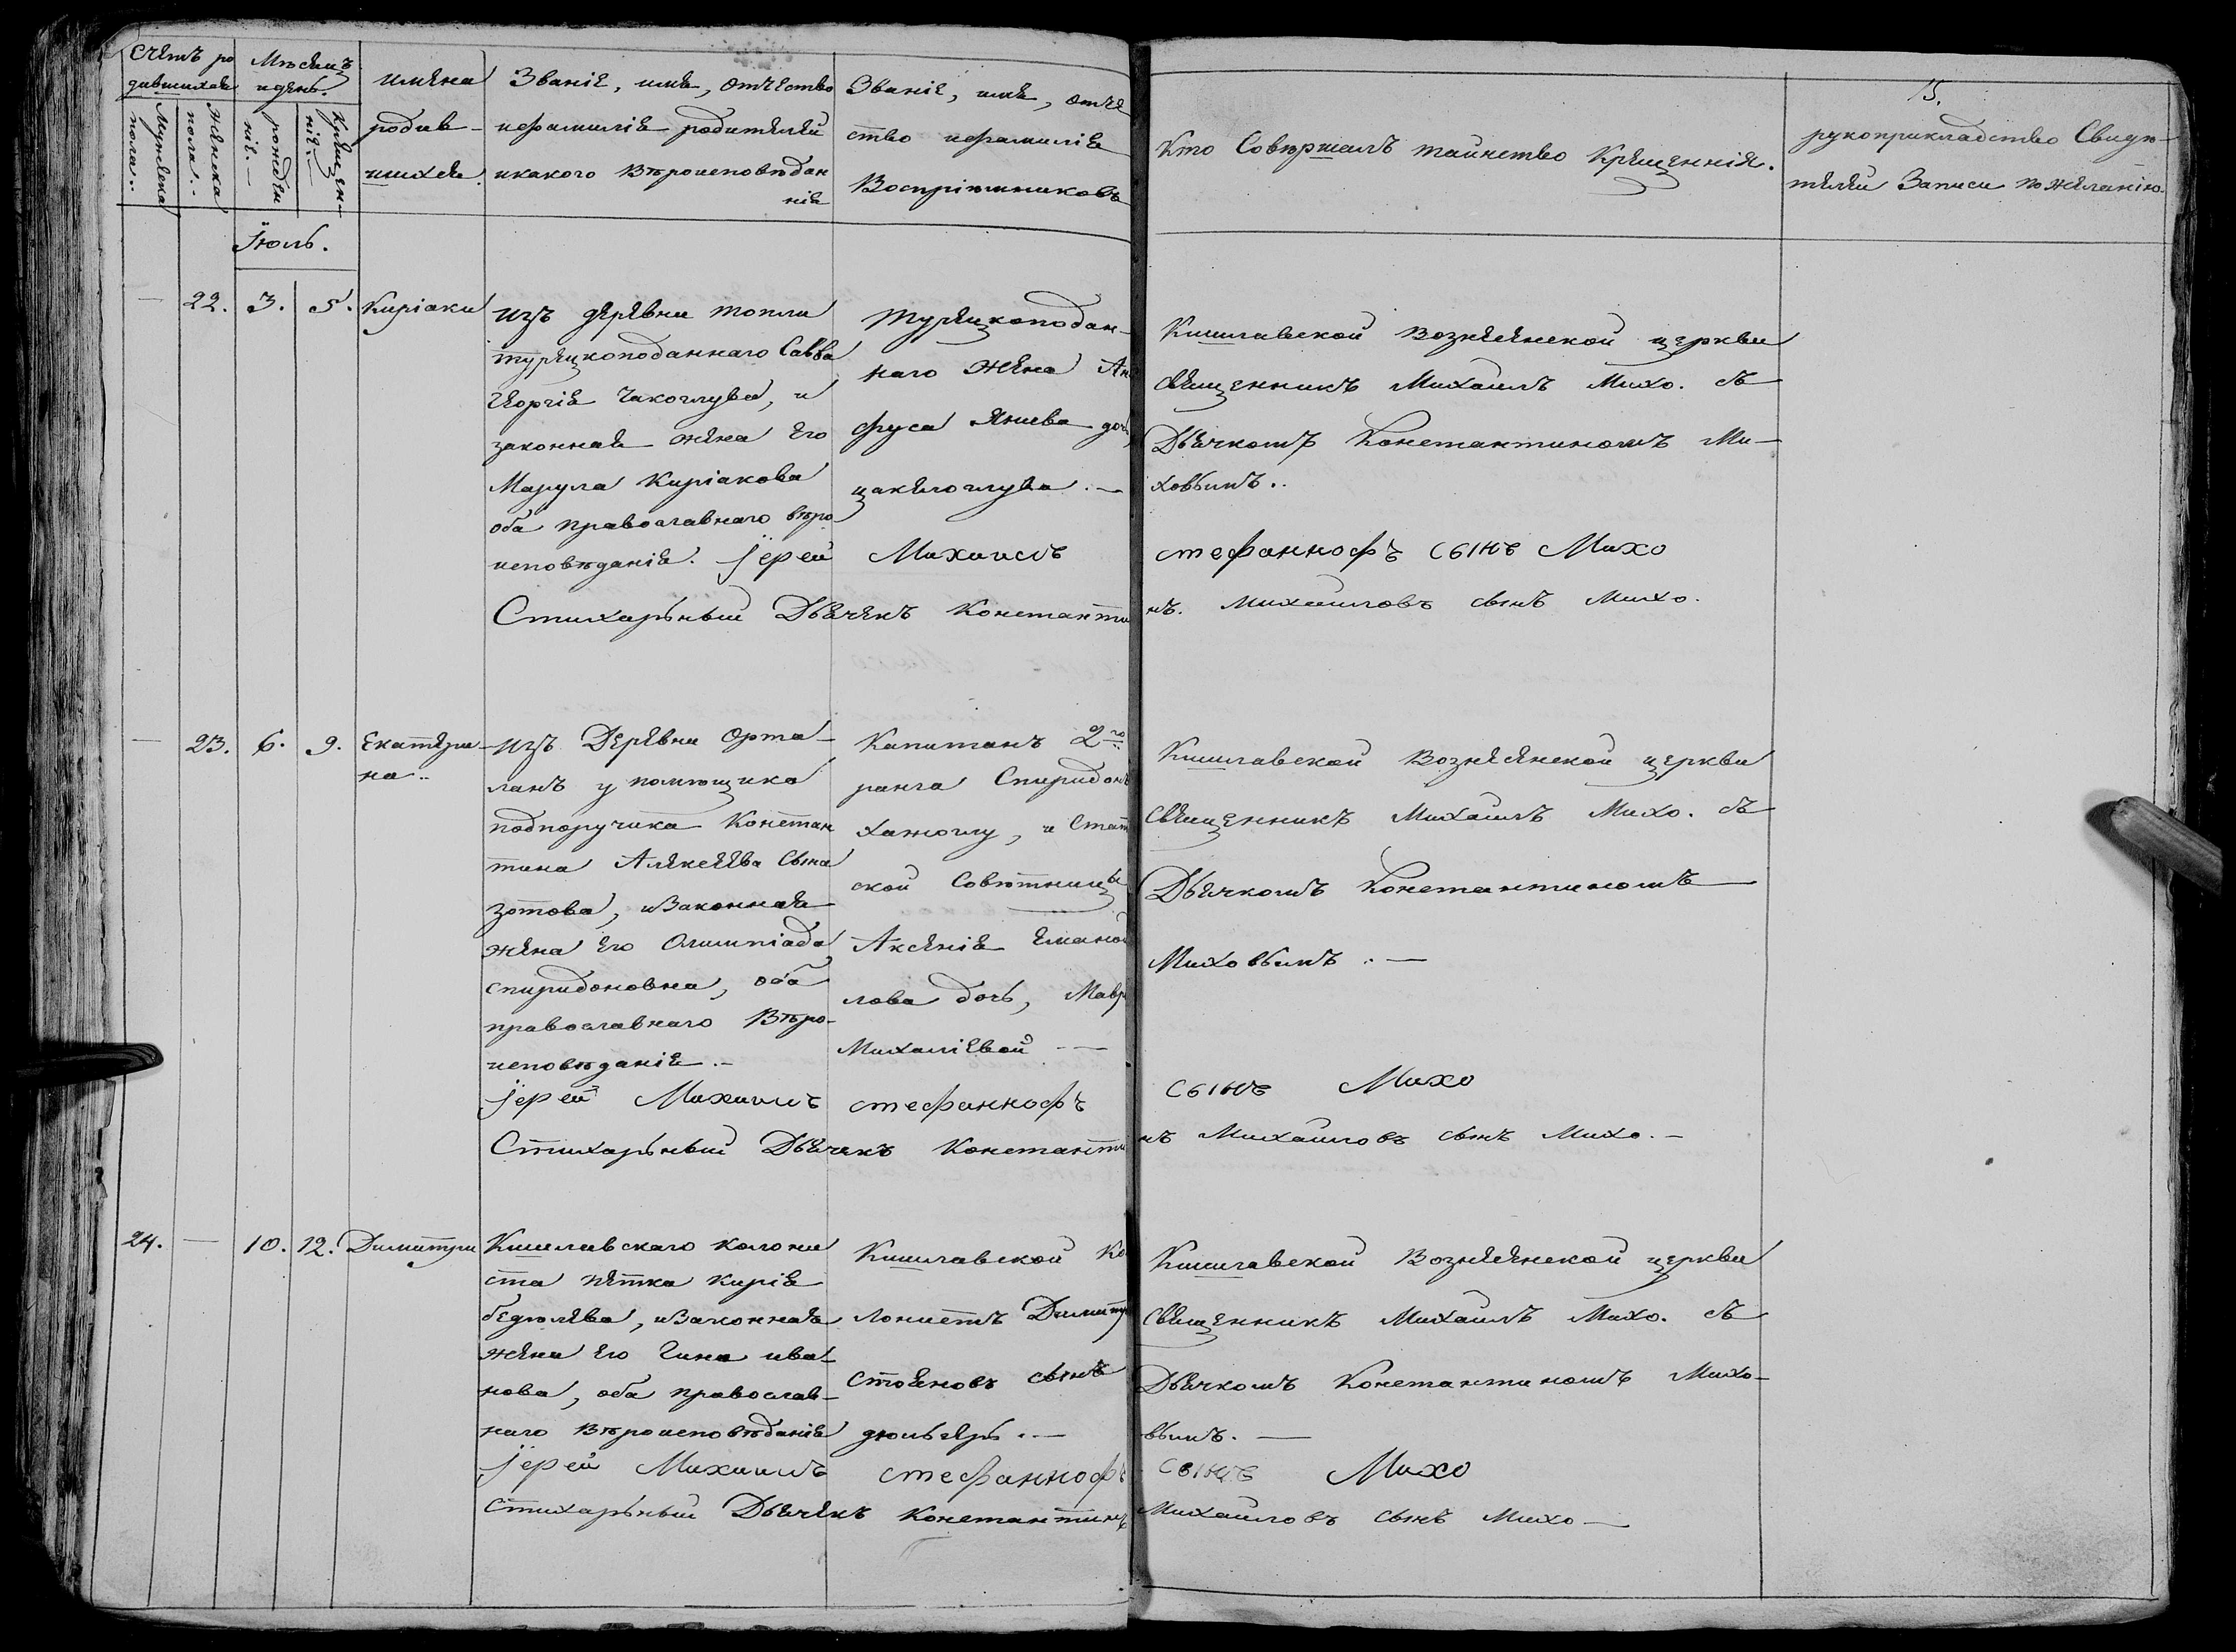 Счетъ ро
дившихся
Мужеска
пола..
Женска
пола..
Мѣсяцъ
и день.
рожде
нія.
Крещен-
нія.
имена
родив-
шихся.
Званіе, имя, отчество
и фамилія родителей
и какого вѣроисповѣдан
нія
Званіе, имя, отче
ство и фамилія
Воспріимниковъ
Кто Совершалъ таинство Крещеннія.
15.
рукоприкладство Свидѣ-
телей Записи по желанію.
Іюль.
— 22. 3. 5. Киріаки
изъ деревни топли
турецкоподаннаго Савва
Георгія Чакоглува, и
законная жена Его
Марула Киріакова
оба православнаго вѣро
исповѣданія.
турецкоподан-
наго жена Ан
фуса Яниева дочь
цакелоглува. —
Кишлавской Вознесенской церкви
священникъ Михаилъ Михо. съ
Дьячкомъ Константиномъ Ми-
ховымъ..
Іерей Михаилъ стефанноффъ сынъ Михо
Стихарьный Дьячекъ Константинъ. Михаиловъ сынъ Михо.
— 23. 6. 9. Екатери-
на..
изъ Деревни Орта-
ланъ у помѣщика
подпоручика Констан
тина Алексеева Сына
Зотова, и Законная
жена Его Олимпіада
Спиридоновна, оба
православнаго Вѣро-
исповѣданія. —
Капитанъ 2го
ранга Спиридонъ
ханоглу, и Стат
ской Совѣтницы
Аксенія Еманои
лова дочь, Мавро
Михаліевой —
Кишлавской Вознесенской церкви
Священникъ Михаилъ Михо. съ
Дьячкомъ Константиномъ
Миховымъ. —
Іерей Михаилъ стефаннофъ сынъ Михо
Стихарьный Дьячекъ Константинъ Михаиловъ сынъ Михо. —
24. — 10. 12. Димитри
Кишлавскаго колони
ста петка киріа
бедюлева, и Законная
жена Его Чина ива-
нова, оба православ-
наго Вѣроисповѣданія
Кишлавской Ко
лонистъ Димитри
Стояновъ сынъ
дюльгеръ. —
Кишлавской Вознесенской церкви
Священникъ Михаилъ Михо. съ
Дьячкомъ Константиномъ Михо-
вымъ. —
Іерей Михаилъ стефаннофъ сынъ Михо
Стихарьный Дьячекъ Константинъ Михаиловъ сынъ Михо —